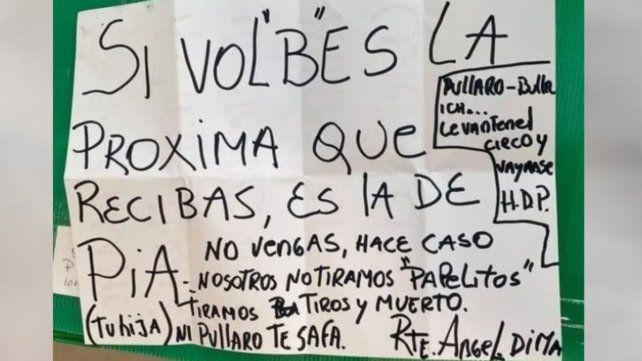 SI VOL"B"ES LA
PROXIMA QUE
RECIBAS, ES LA DE
PIA.
(Tu hija)
NO VENGAS, HACE CASO
NOSOTROS NO TIRAMOS "PAPELITOS"
TIRAMOS TIROS y MUERTO.
NI PULLARO TE SAFA.
RTE. ANGEL DIMA
PULLARO-Bulla
ICH...
Levanten el
CIRCO y
VAYANSE
H.D.P.